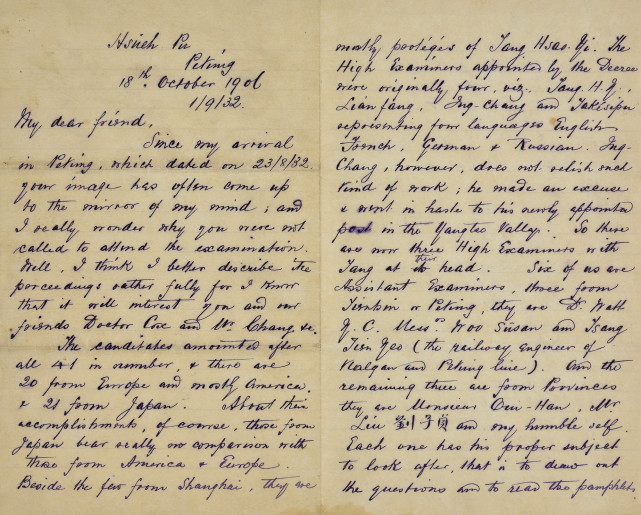 Hsüeh Pu
Peking
18th October 1906
1/9/32.
My dear friend,
Since my arrival
in Peking, which dated on 23/8/32
your image has often come up
to the mirror of my mind; and
I really wonder why you were not
called to attend the examination.
Well, I think I better describe the
proceedings rather fully for I know
that it will interest you and our
friends Doctor Cox and Mr. Chang &c.
The candidates amounted after
all 41 in number, & there are
20 from Europe and mostly America,
& 21 from Japan. About their
accomplishments, of course, those from
Japan bear really no comparison with
those from America & Europe.
Beside the few from Shanghai, they are
mostly protégés of Tang Hsao-Yi. The
High Examiners appointed by the Decree
were originally four, viz. Tang H.Y.,
Lian fang, Ing-Chang and
representing four languages English,
French, German & Russian. Ing-
Chang, however, does not relish such
kind of work; he made an excuse
& went in haste to his newly appointed
post in the Yangtse Valley. So there
are now three High Examiners with
Tang at their head. Six of us are
Assistant Examiners, three from
Tientsin or Peking, they are Dr. Watt
Y. C. Messrs. Woo Susan and Tsang
Tien Yeo (the railway engineer of
Kalgan and Peking line). And the
remaining three are from Provinces
they are Monsieur Ou-Han, Mr.
Liu 劉子貞 and my humble self.
Each one has his proper subject
to look after, that is to draw out
the questions and to read the pamphlets